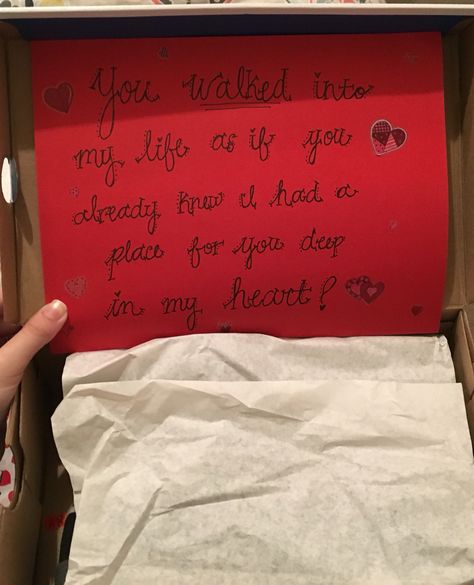 You walked into
my life as if you
already knew I had a
place for you deep
in my heart?